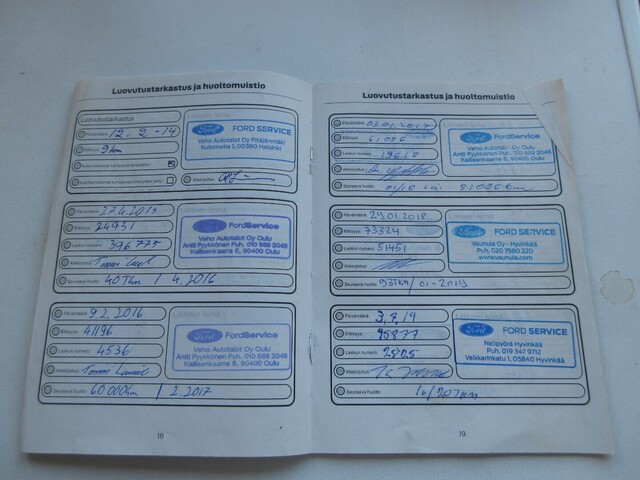 Luovutustarkastus ja huoltomuistio
Luovutustarkastus
Päivämäärä 12. 2 -14
9 km
Ford FORD SERVICE
Veho Autotalot Oy Pitäjänmäki
Kutomotie 1, 00380 Helsinki
Allekirjoitus
Päivämäärä 27.4.2015
Etäisyys 24931
Laskun numero 396775
Allekirjoitus
Seuraava huolto 40Tkm / 4.2016
Ford FordService
Veho Autotalot Oy Oulu
Antti Pyykkönen Puh. 010 569 2046
Kallisenkaarre 5, 90400 Oulu
Päivämäärä 9.2.2016
Etäisyys 41196
Laskun numero 4536
Allekirjoitus
Seuraava huolto 60 000km / 2.2017
Ford FordService
Veho Autotalot Oy Oulu
Antti Pyykkönen Puh. 010 569 2046
Kallisenkaarre 5, 90400 Oulu
18
Luovutustarkastus ja huoltomuistio
Päivämäärä 03.01.2017
Etäisyys 61096
Laskun numero 19618
Allekirjoitus
Seuraava huolto 01/18
Ford FordService
Veho Autotalot Oy Oulu
Antti Pyykkönen Puh. 010 569 2046
Kallisenkaarre 5, 90400 Oulu
Päivämäärä 29.01.2018
Etäisyys 73324
Laskun numero 51451
Allekirjoitus
Seuraava huolto 93Tkm / 01-2019
Ford FORD SERVICE
Vauhula Oy - Hyvinkää
Puh. 020 7560 220
www.vauhula.com
Päivämäärä 3.7.19
Etäisyys 95877
Laskun numero 2825
Allekirjoitus
Seuraava huolto
Ford FORD SERVICE
Nelipyörä Hyvinkää
Puh. 019 347 9712
Veikkarinkatu 1, 05840 Hyvinkää
19